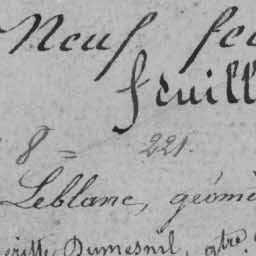 Neuf feu
feuill
8 = 221.
Leblanc, géomè
Dumesnil, gtre